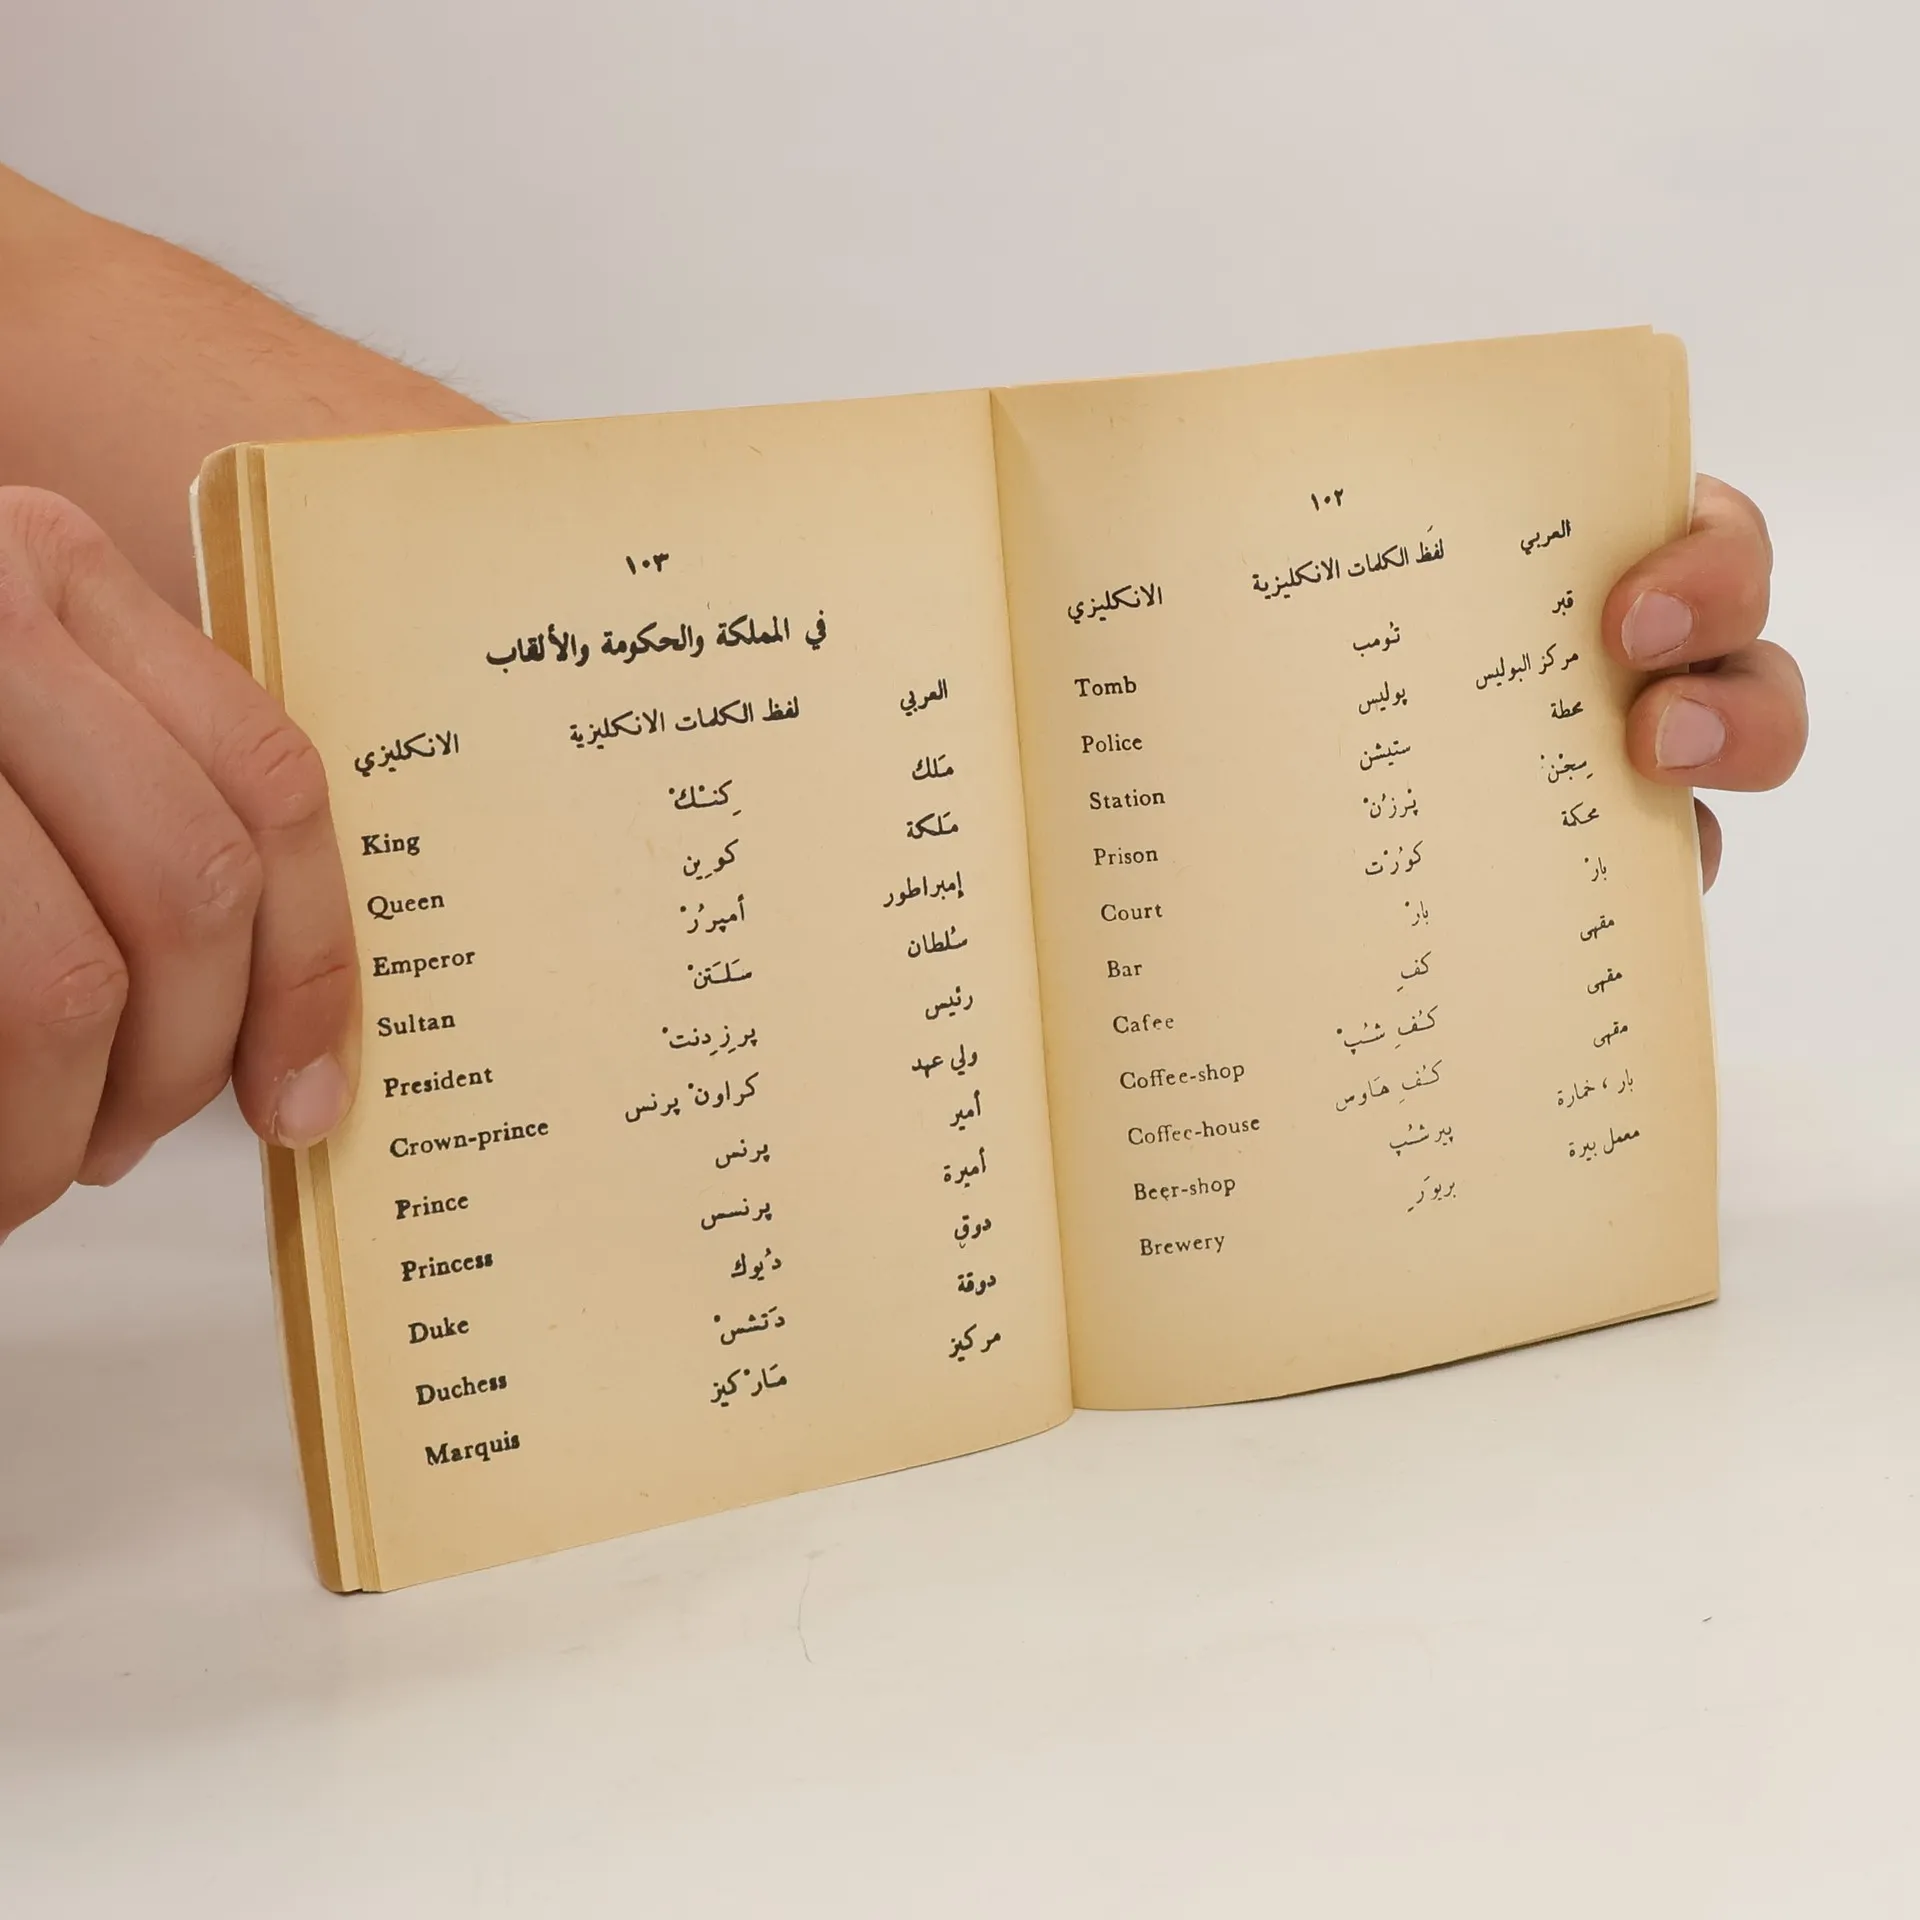 ١٠٢
العربي لفظ الكلمات الانكليزية الانكليزي
قبر تُومب Tomb
مركز البوليس پوليس Police
محطة ستيشن Station
سِجْنْ پْرزُنْ Prison
محكمة كوُرْت Court
بارْ بارْ Bar
مقهى كفِ Cafee
مقهى كُفِ شُپْ Coffee-shop
مقهى كُفِ هَاوس Coffee-house
بار ، خمارة بير شُپ Beer-shop
معمل بيرة بريوَرِ Brewery
١٠٣
في المملكة والحكومة والألقاب
العربي لفظ الكلمات الانكليزية الانكليزي
مَلك كِنْكْ King
مَلكة كوِين Queen
إمبراطور أمپرُرْ Emperor
سُلطان سَلَتنْ Sultan
رئيس پرِزِدِنتْ President
ولي عهد كراونْ پرنس Crown-prince
أمير پرنس Prince
أميرة پرنسس Princess
دوق دُيوك Duke
دوقة دَتشسْ Duchess
مركيز مَارْكيز Marquis